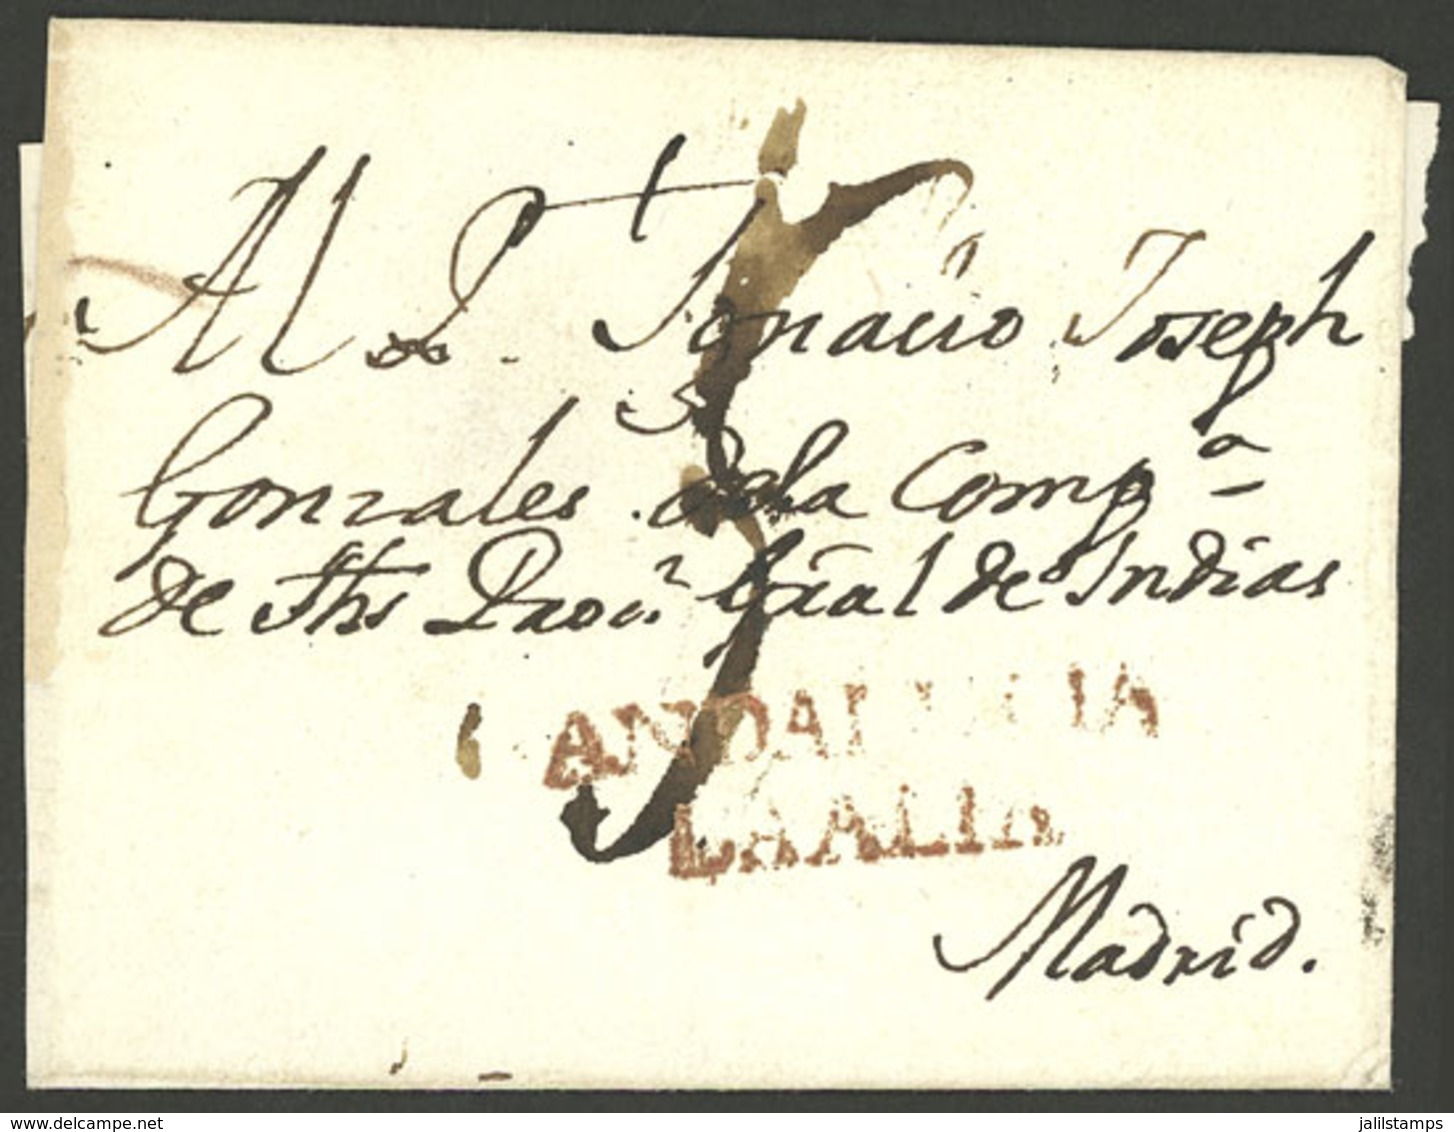 Al P. + Ignacio Joseph
Gonzales de la Comp.ª
de Jhs Procu.r Gral de Indias
ANDALUCIA
LA ALTA
Madrid.
www.delcampe.net
jalilstamps